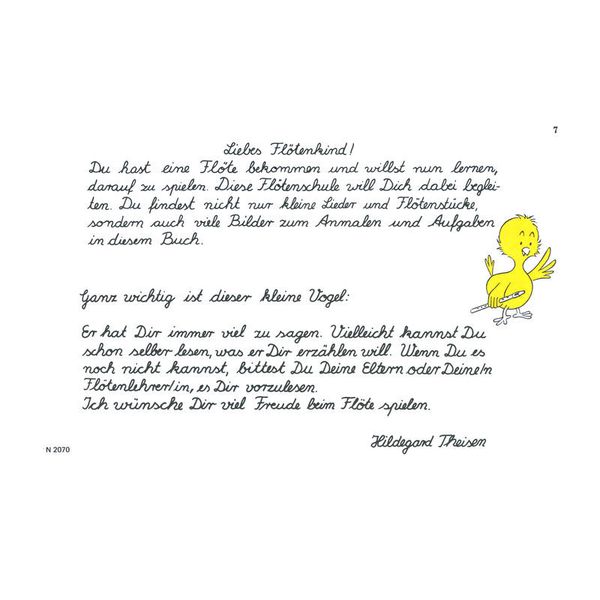 7
Liebes Flötenkind!
Du hast eine Flöte bekommen und willst nun lernen,
darauf zu spielen. Diese Flötenschule will Dich dabei beglei-
ten. Du findest nicht nur kleine Lieder und Flötenstücke,
sondern auch viele Bilder zum Anmalen und Aufgaben
in diesem Buch.
Ganz wichtig ist dieser kleine Vogel:
Er hat Dir immer viel zu sagen. Vielleicht kannst Du
schon selber lesen, was er Dir erzählen will. Wenn Du es
noch nicht kannst, bittest Du Deine Eltern oder Deine/n
Flötenlehrer/in, es Dir vorzulesen.
Ich wünsche Dir viel Freude beim Flöte spielen.
Hildegard Theisen
N 2070